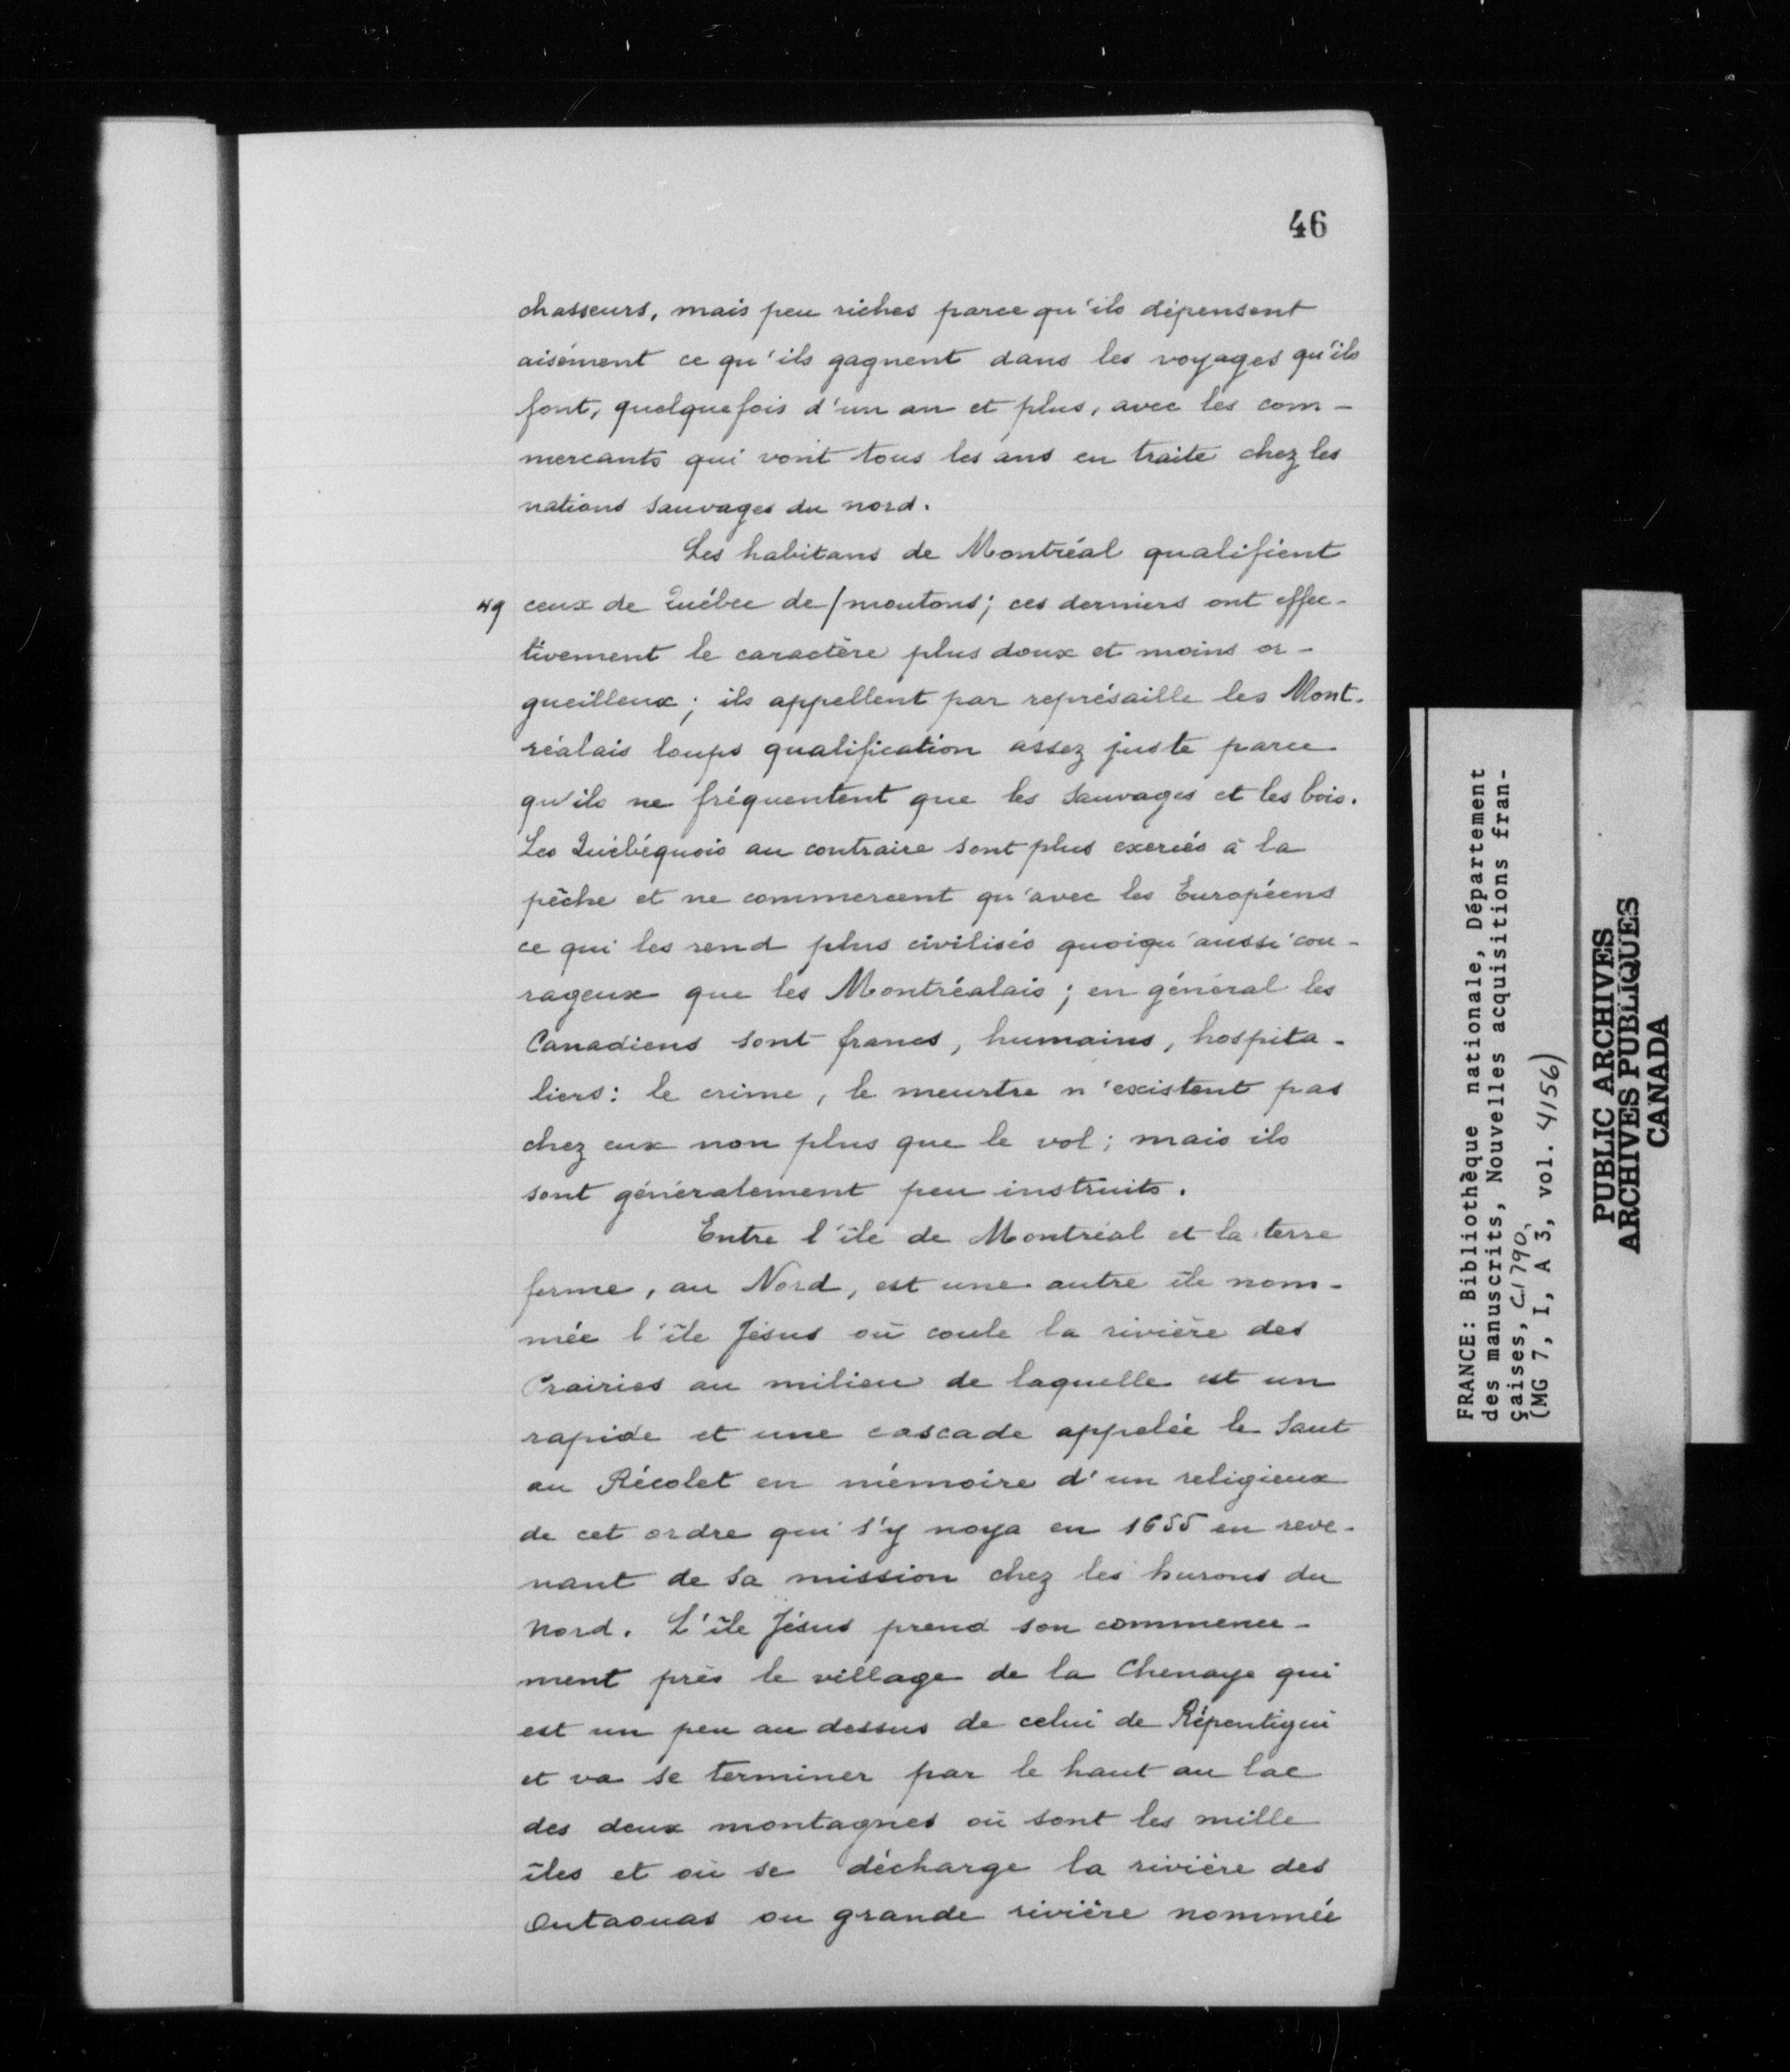 46
chasseurs, mais peu riches parce qu'ils dépensent
aisément ce qu'ils gagnent dans les voyages qu'ils
font, quelquefois d'un an et plus, avec les com-
mercants qui vont tous les ans en traite chez les
nations sauvages du nord.
Les habitans de Montréal qualifient
49 ceux de Québec de/moutons; ces derniers ont effec-
tivement le caractère plus doux et moins or-
gueilleux; ils appellent par représaille les Mont-
réalais loups qualification assez juste parce
qu'ils ne fréquentent que les Sauvages et les bois.
Les Québéquois au contraire sont plus exercés à la
pêche et ne commercent qu'avec les Européens
ce qui les rend plus civilisés quoiqu'aussi cou-
rageux que les Montréalais; en général les
Canadiens sont francs, humains, hospita-
liers: le crime, le meurtre n'existent pas
chez eux non plus que le vol; mais ils
sont généralement peu instruits.
Entre l'île de Montréal et la terre
ferme, au Nord, est une autre île nom-
mée l'île Jésus où coule la rivière des
Prairies au milieu de laquelle est un
rapide et une cascade appelée le Saut
au Récolet en mémoire d'un religieux
de cet ordre qui s'y noya en 1655 en reve-
nant de sa mission chez les hurons du
nord. L'île Jésus prend son commence-
ment près le village de la Chenaye qui
est un peu au dessus de celui de Répentigui
et va se terminer par le haut au lac
des deux montagnes où sont les mille
îles et où se décharge la rivière des
Outaouas ou grande rivière nommée
FRANCE: Bibliothèque nationale, Département
des manuscrits, Nouvelles acquisitions fran-
çaises, C.1790,
(MG 7, I, A 3, vol. 4156)
PUBLIC ARCHIVES
ARCHIVES PUBLIQUES
CANADA